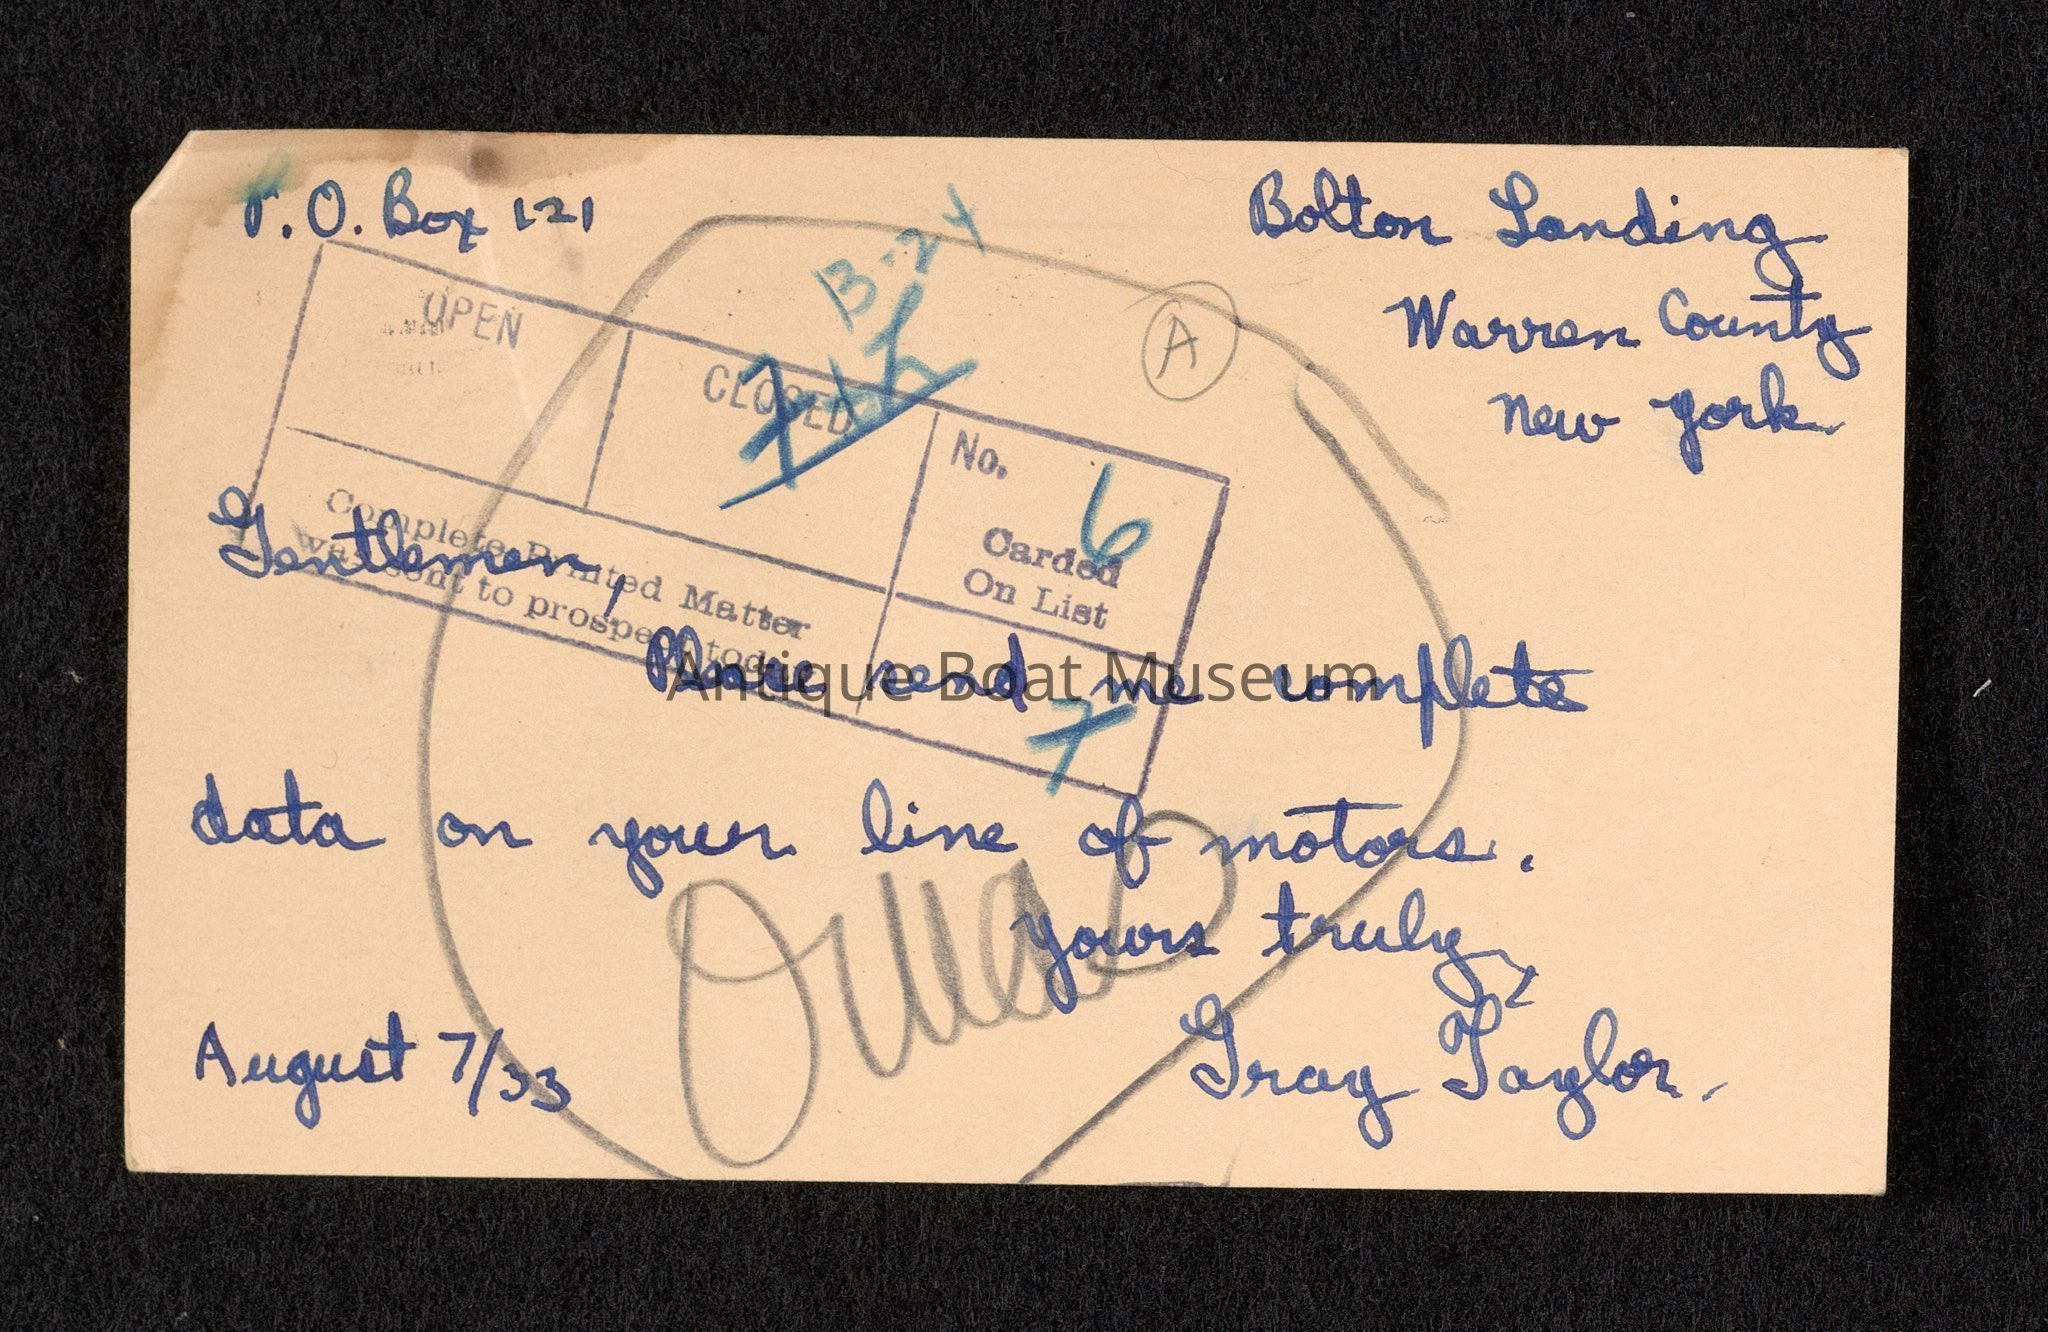 P.O. Box 121
Bolton Landing
Warren County
New York
13-24
A
OPEN
CLOSED
7
No.
6
Carded
On List
Complete Printed Matter
was sent to prospect today
7
Gentlemen,
Please send me complete
Antique Boat Museum
data on your line of motors.
Yours truly,
Gray Taylor.
August 7/33